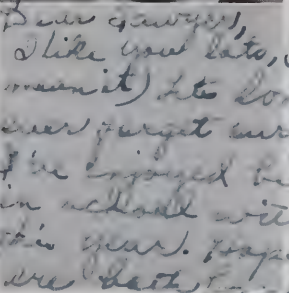 Dear Sawyer,
I like you lots,
mean it) Lets
ever forget our
I've enjoyed be
in school with
this year. 
are both